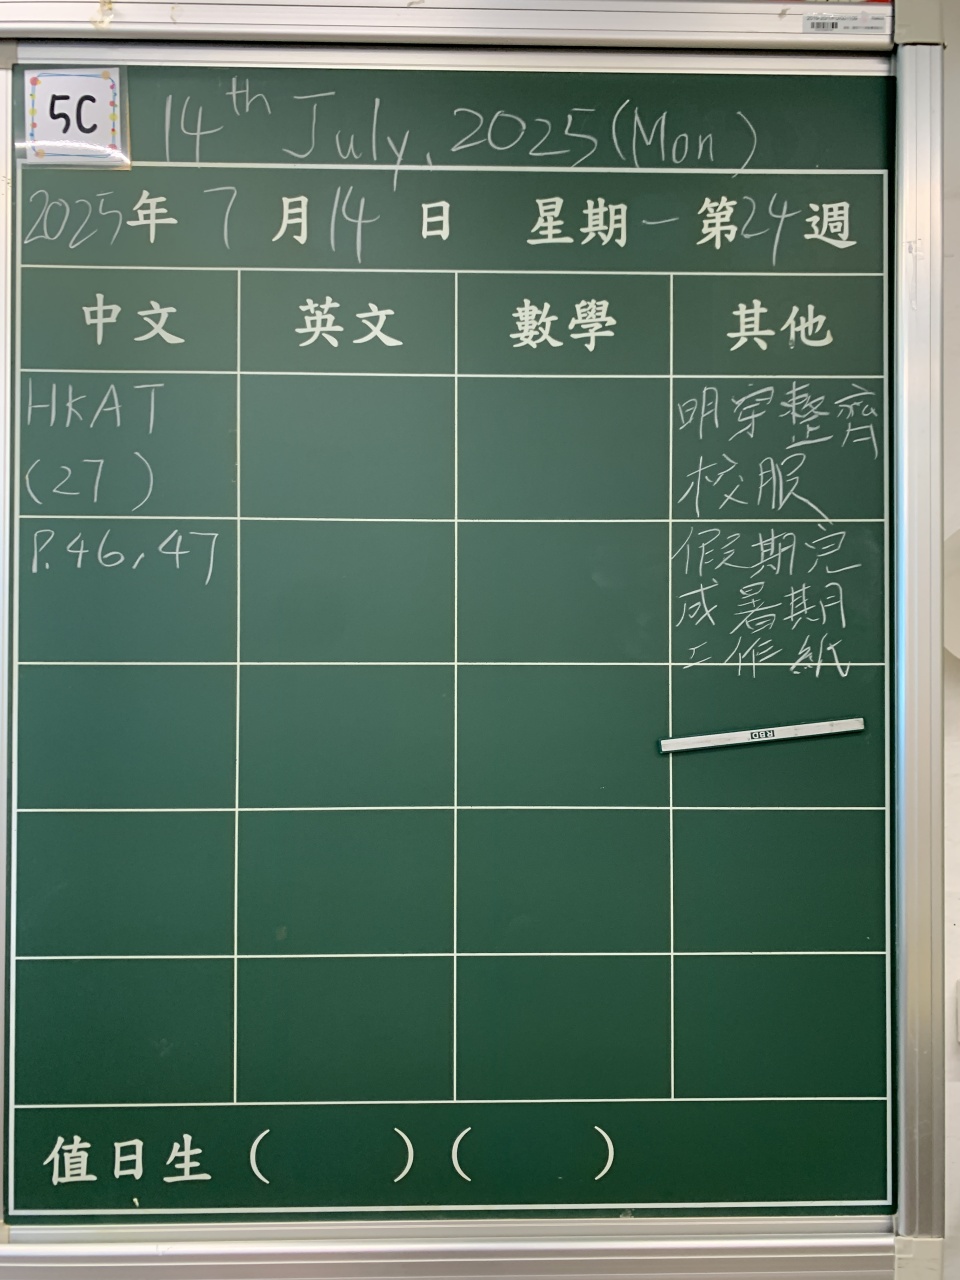 5C
14th July, 2025 (Mon)
2025年 7月14日 星期一 第24週
中文 英文 數學 其他
HKAT
(27)
P.46,47
明穿整齊
校服
假期完
成暑期
工作紙
RBD
值日生 ( ) ( )